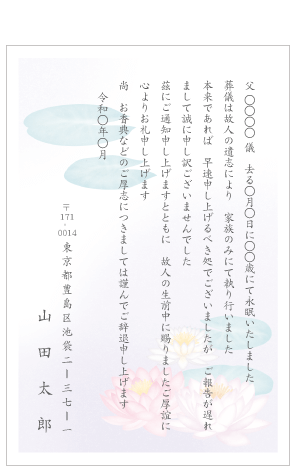 父 〇〇〇〇 儀 去る〇月〇日に〇〇歳にて永眠いたしました
葬儀は故人の遺志により 家族のみにて執り行いました
本来であれば 早速申し上げるべき処でございましたが ご報告が遅れ
まして誠に申し訳ございませんでした
茲にご通知申し上げますとともに 故人の生前中に賜りましたご厚誼に
心よりお礼申し上げます
尚 お香典などのご厚志につきましては謹んでご辞退申し上げます
令和〇年〇月
〒171-0014
東京都豊島区池袋二ー三七ー一
山田太郎